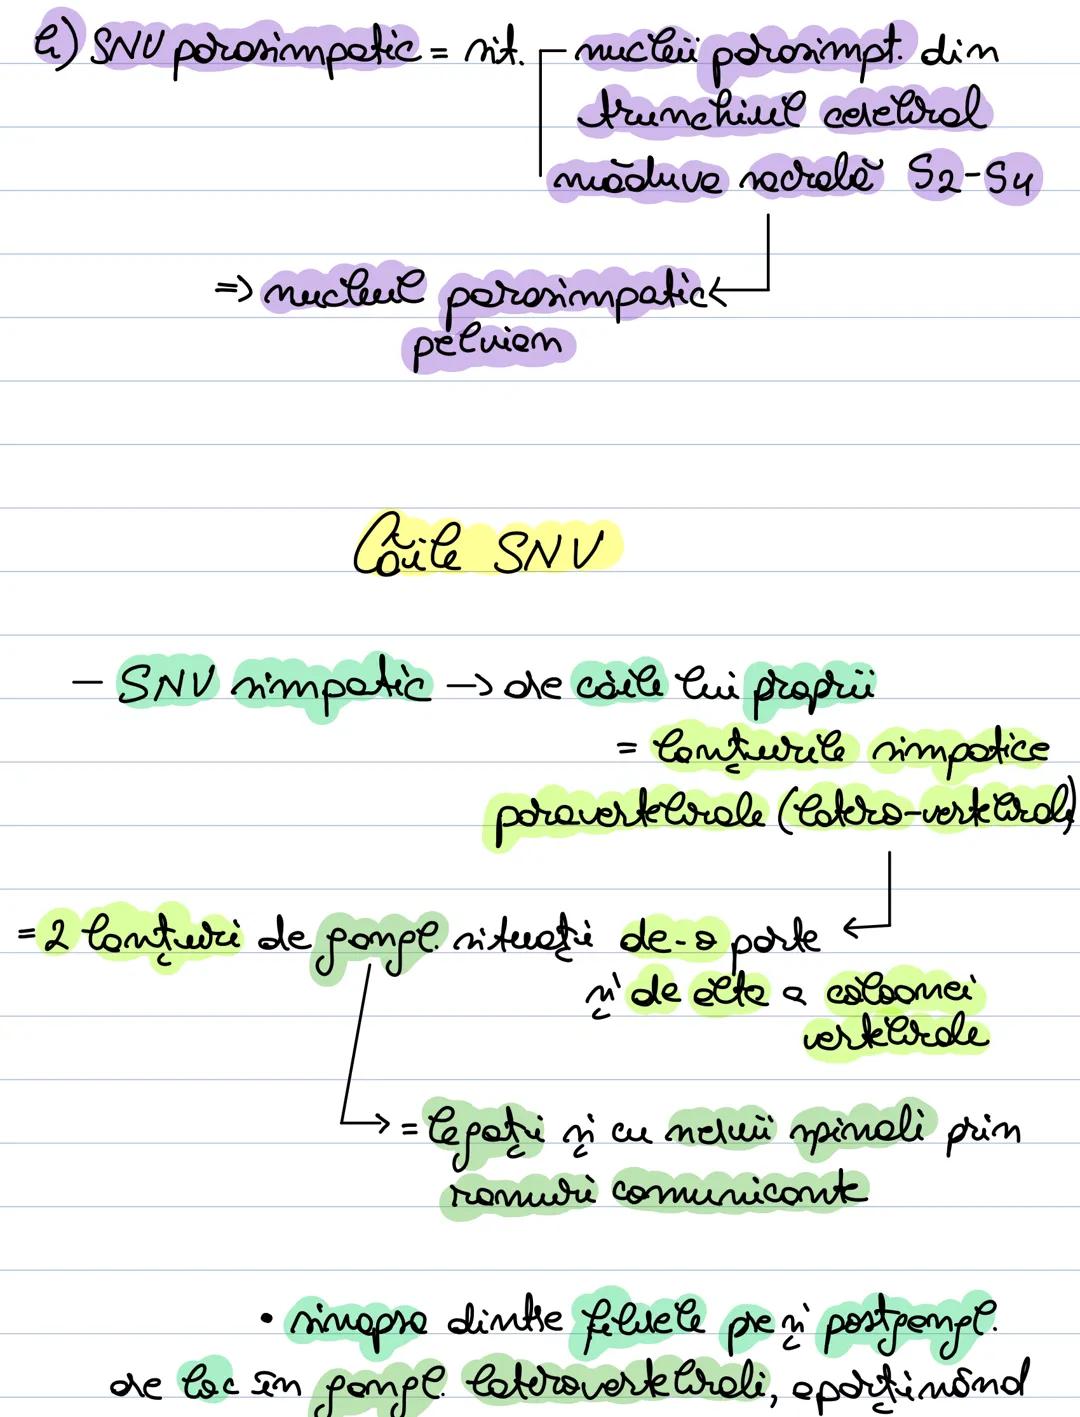 b) SNV parasimpatic = sit. nucleii parasimpt. din
trunchiul cerebral
măduva sacrală S2-S4
=> nucleul parasimpatic
pelvian
Căile SNV
- SNV simpatic -> are căile lui proprii
= lanțurile simpatice
paravertebrale (latero-vertebrale)
= 2 lanțuri de gangl. situați de-o parte
și de alta a coloanei
vertebrale
= legați și cu nervii spinali prin
ramuri comunicante
• sinapsa dintre fibrele pre și postgangl.
are loc în gangl. laterovertebrali, aparținând